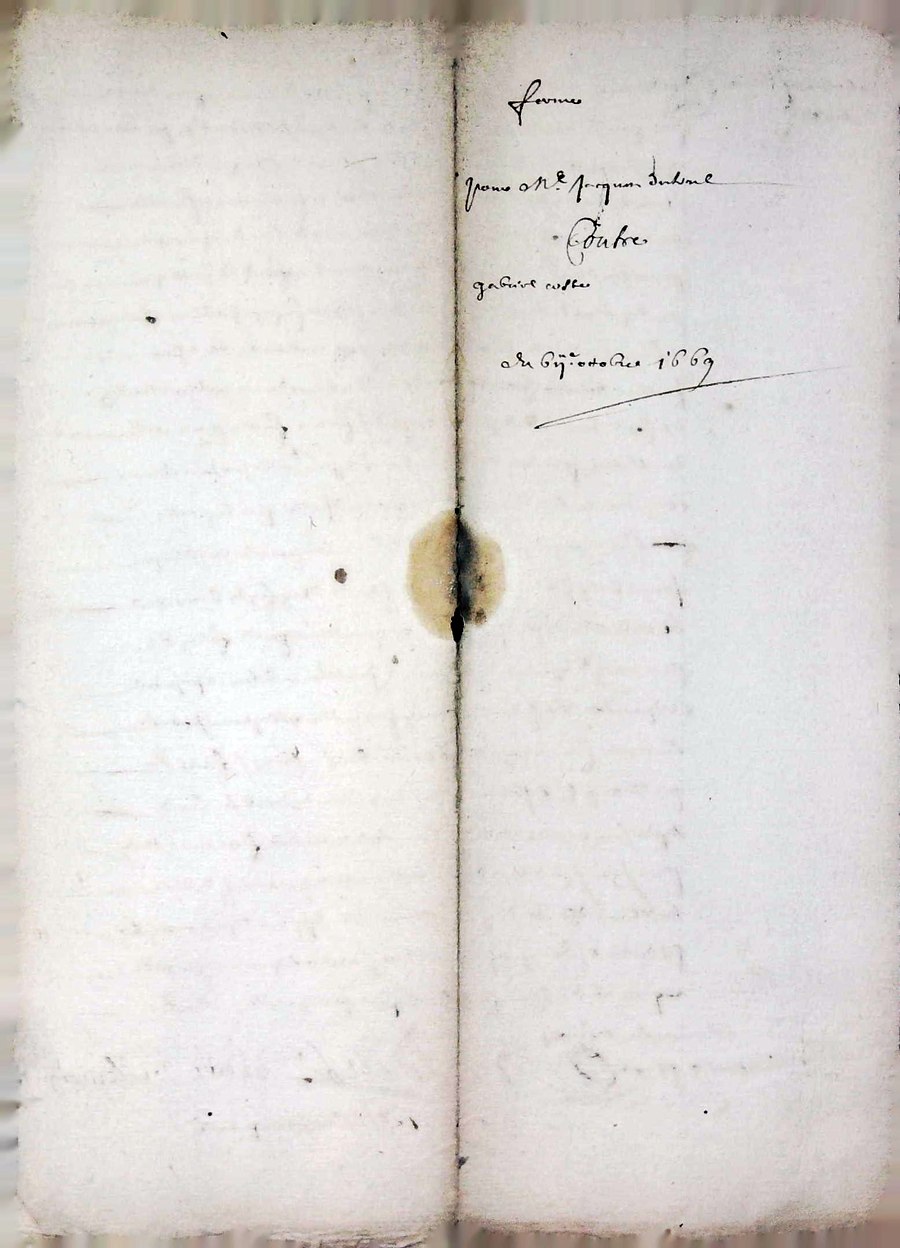 ferme
pour Me Jacques
Contre
gabriel coste
du 6ije octobre 1669